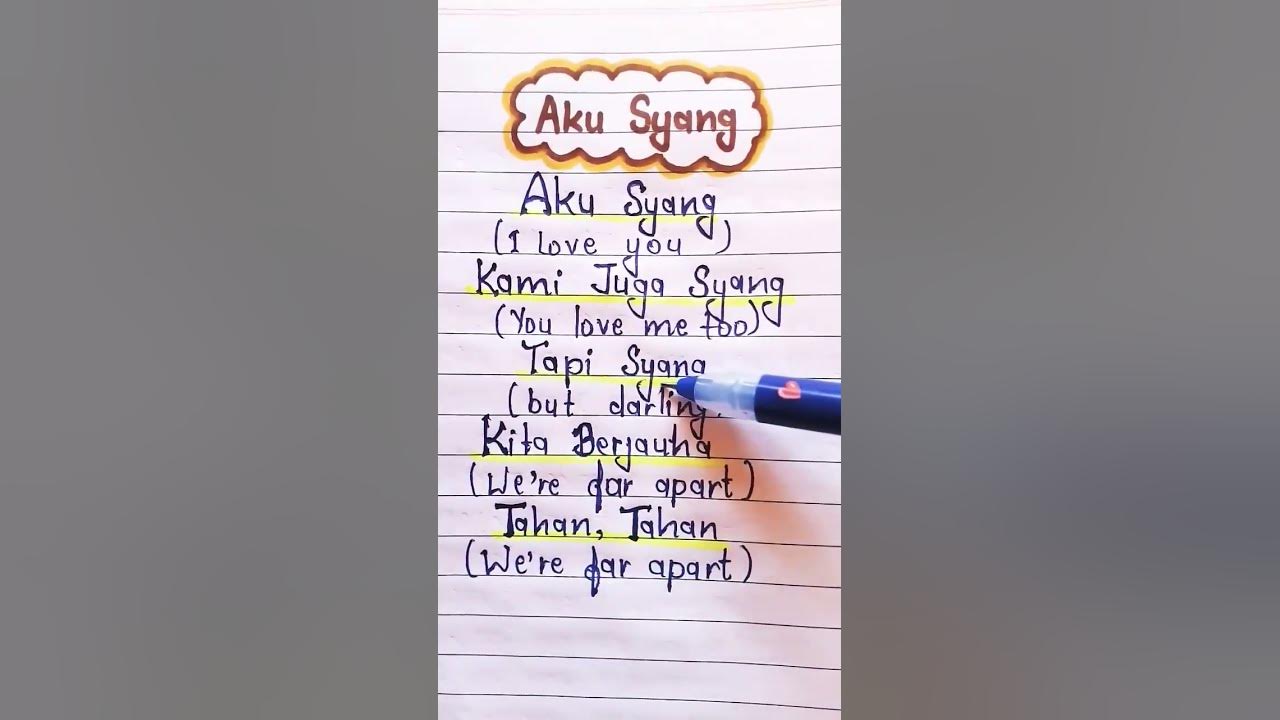 Aku Syang
Aku Syang
(I love you )
Kami Juga Syang
(You love me too)
Tapi Syang
(but darling.
Kita Berjauha
(We're far apart)
Tahan, Tahan
(We're far apart)